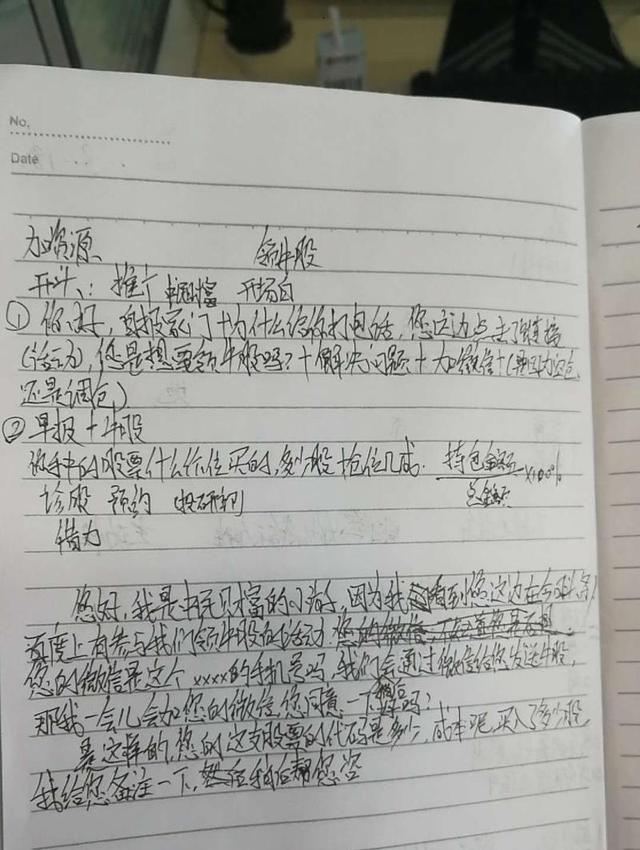 No.
Date
加资源 领牛股
开头: 推个 财富 开场白
① 你好, 自报家门+为什么给你打电话, 您这边点击了链接
(活动), 您是想要领牛股吗?+解决问题+加微信+(
还是调仓)
② 早报+牛股
你手中的股票什么价位买的, 多少股+仓位几成. 持仓金额/总金额 ×100%
诊股 预约
借力
您好, 我是 财富的小 , 因为我 看到您这边在今日头条/
百度上有参与我们领牛股的活动
您的微信是这个xxxx的手机号吗, 我们会通过微信给您发送牛股,
那我一会儿会加您的微信, 您同意一下 好吗?
是这样的, 您的这支股票的代码是多少, 成本呢, 买入了多少股
我给您备注一下, 然后我后 帮您咨